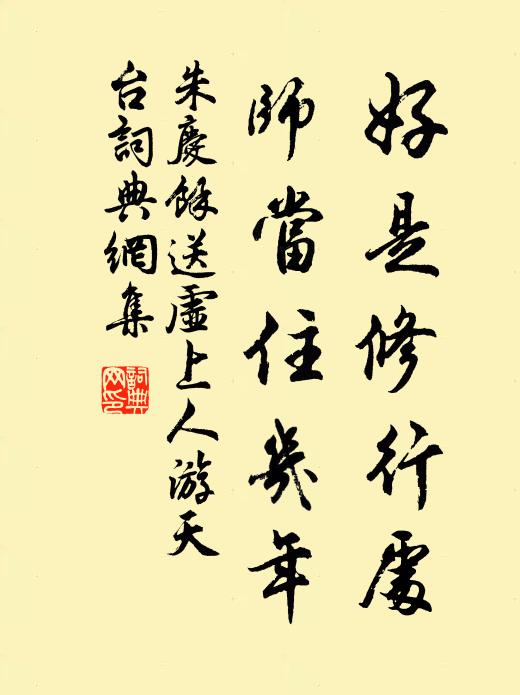 好是修行處
師當住幾年
朱慶餘送虛上人游天
台詞典網集
詞典網印